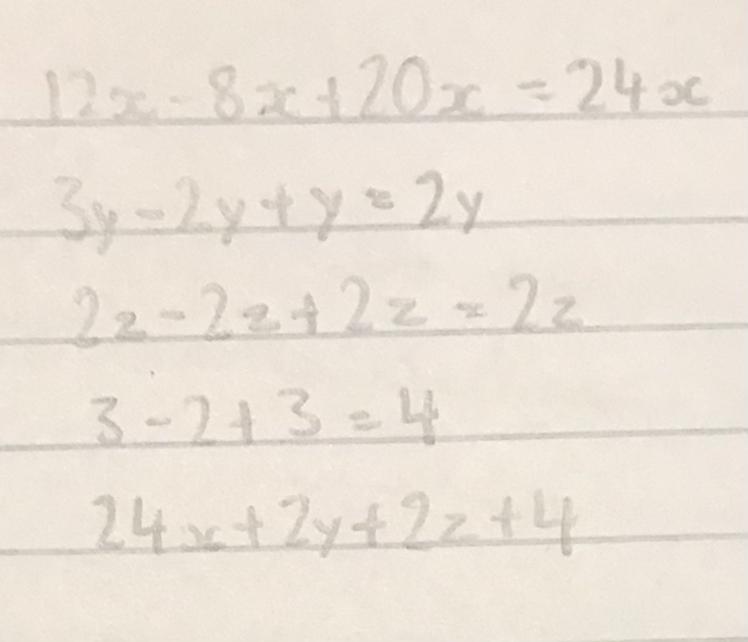 12x - 8x + 20x = 24x
3y - 2y + y = 2y
2z - 2z + 2z = 2z
3 - 2 + 3 = 4
24x + 2y + 2z + 4